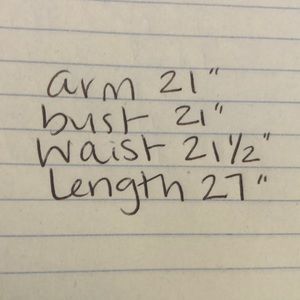 arm 21"
bust 21"
waist 21 1/2"
Length 27"